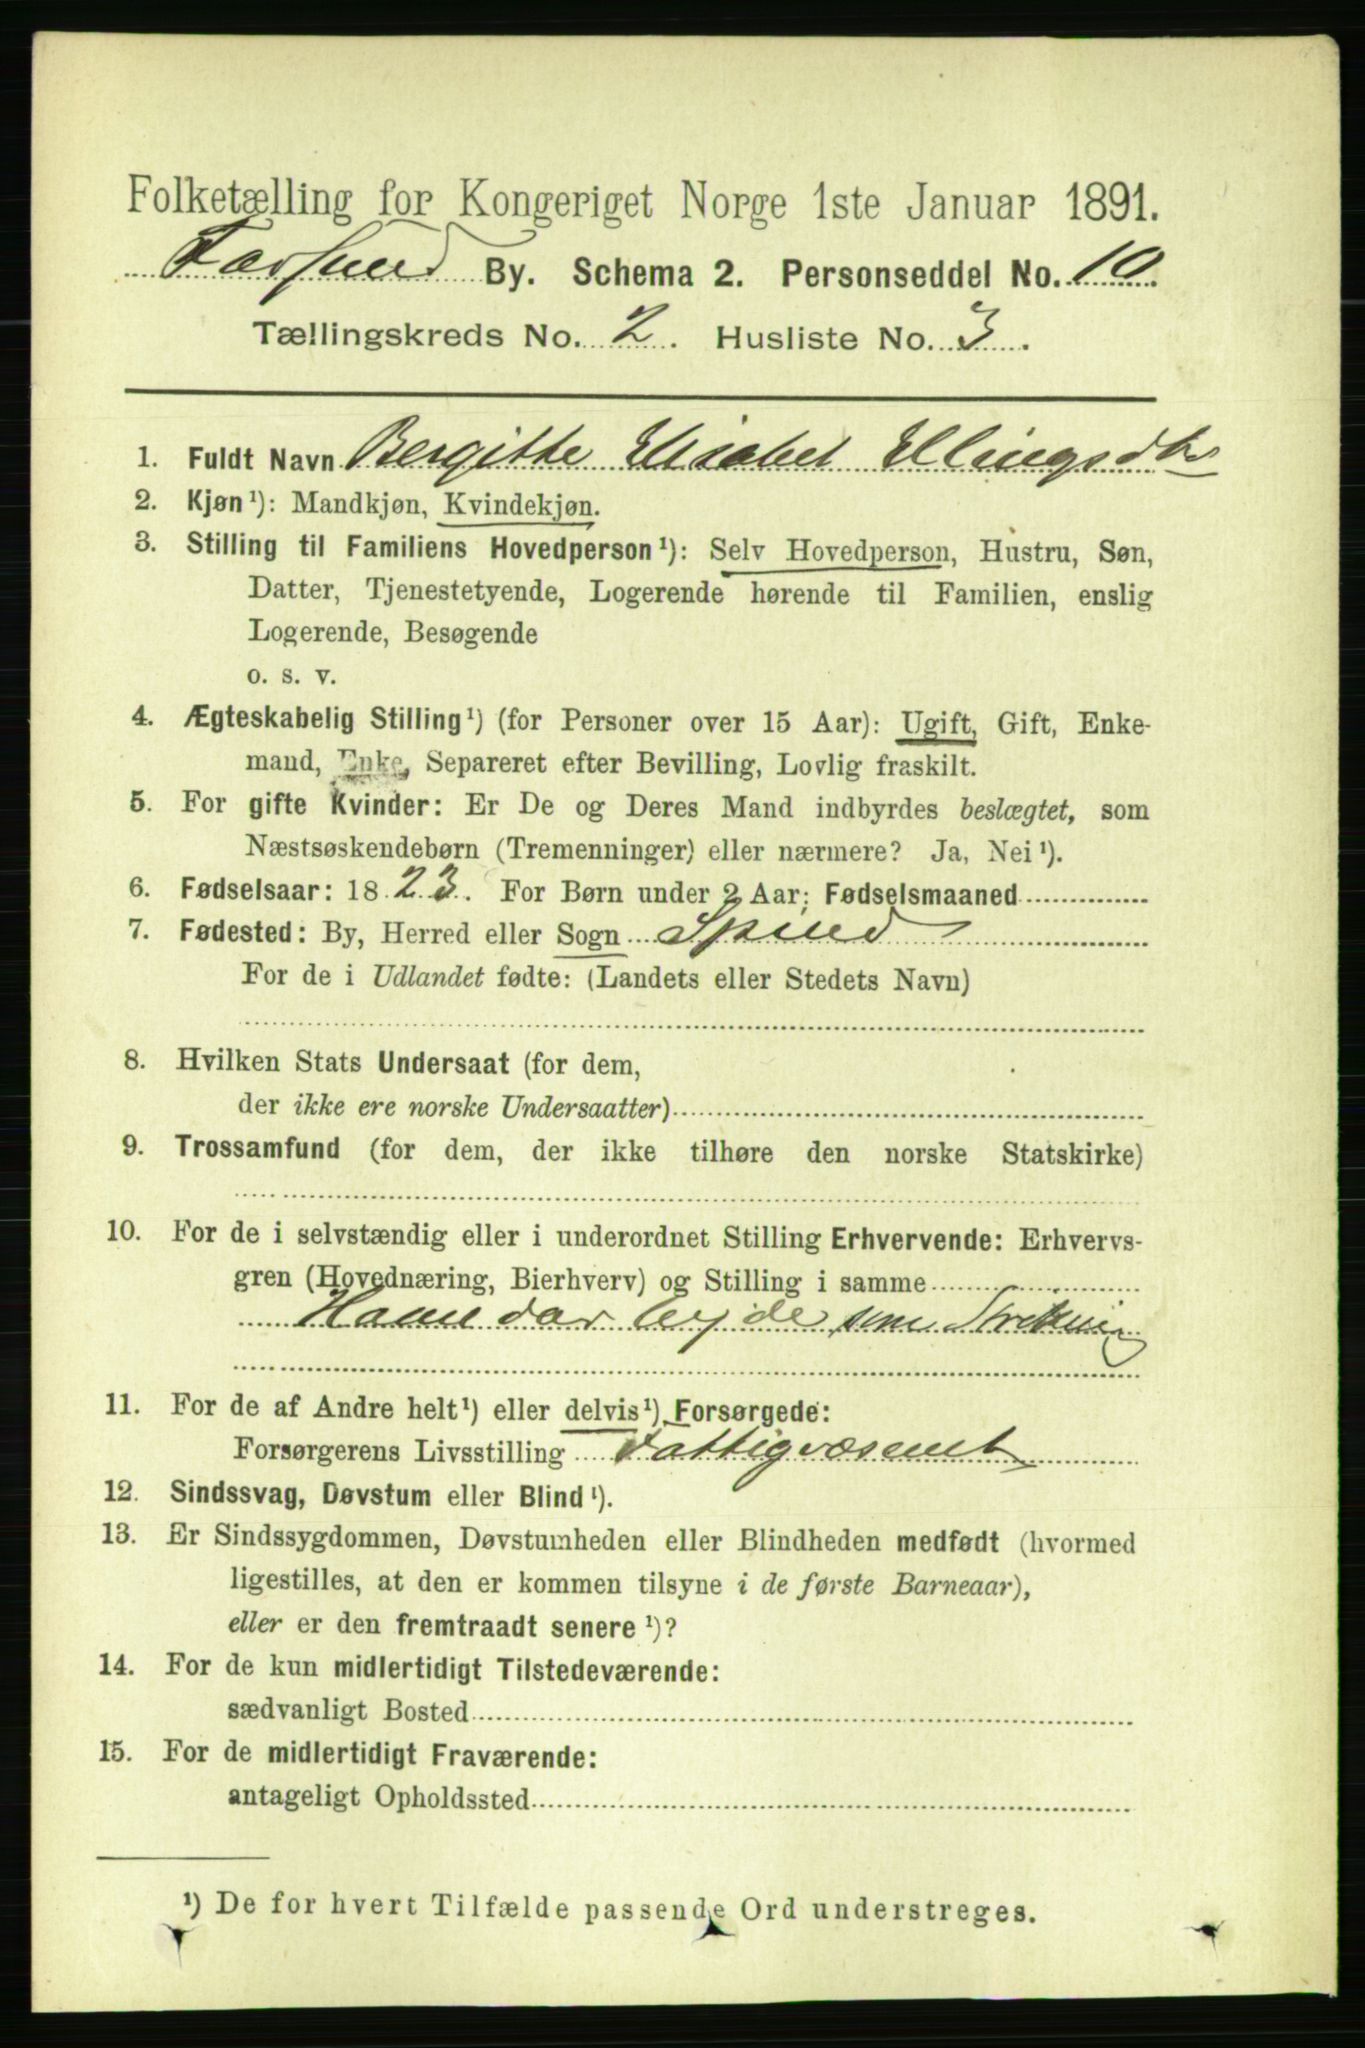 Folketælling for Kongeriget Norge 1ste Januar 1891.
Farsund By. Schema 2. Personseddel No. 10.
Tællingskreds No. 2. Husliste No. 3.
1. Fuldt Navn Bergitte Elisabet Ellingsdtr
2. Kjøn¹): Mandkjøn, Kvindekjøn.
3. Stilling til Familiens Hovedperson¹): Selv Hovedperson, Hustru, Søn,
Datter, Tjenestetyende, Logerende hørende til Familien, enslig
Logerende, Besøgende
o. s. v.
4. Ægteskabelig Stilling¹) (for Personer over 15 Aar): Ugift, Gift, Enke-
mand, Enke, Separeret efter Bevilling, Lovlig fraskilt.
5. For gifte Kvinder: Er De og Deres Mand indbyrdes beslægtet, som
Næstsøskendebørn (Tremenninger) eller nærmere? Ja, Nei¹).
6. Fødselsaar: 1823. For Børn under 2 Aar: Fødselsmaaned
7. Fødested: By, Herred eller Sogn Spind
For de i Udlandet fødte: (Landets eller Stedets Navn)
8. Hvilken Stats Undersaat (for dem,
der ikke ere norske Undersaatter)
9. Trossamfund (for dem, der ikke tilhøre den norske Statskirke)
10. For de i selvstændig eller i underordnet Stilling Erhvervende: Erhvervs-
gren (Hovednæring, Bierhverv) og Stilling i samme
Haandarbejde som Strikning
11. For de af Andre helt¹) eller delvis¹) Forsørgede:
Forsørgerens Livsstilling Fattigvæsenet
12. Sindssvag, Døvstum eller Blind¹).
13. Er Sindssygdommen, Døvstumheden eller Blindheden medfødt (hvormed
ligestilles, at den er kommen tilsyne i de første Barneaar),
eller er den fremtraadt senere¹)?
14. For de kun midlertidigt Tilstedeværende:
sædvanligt Bosted
15. For de midlertidigt Fraværende:
antageligt Opholdssted
¹) De for hvert Tilfælde passende Ord understreges.